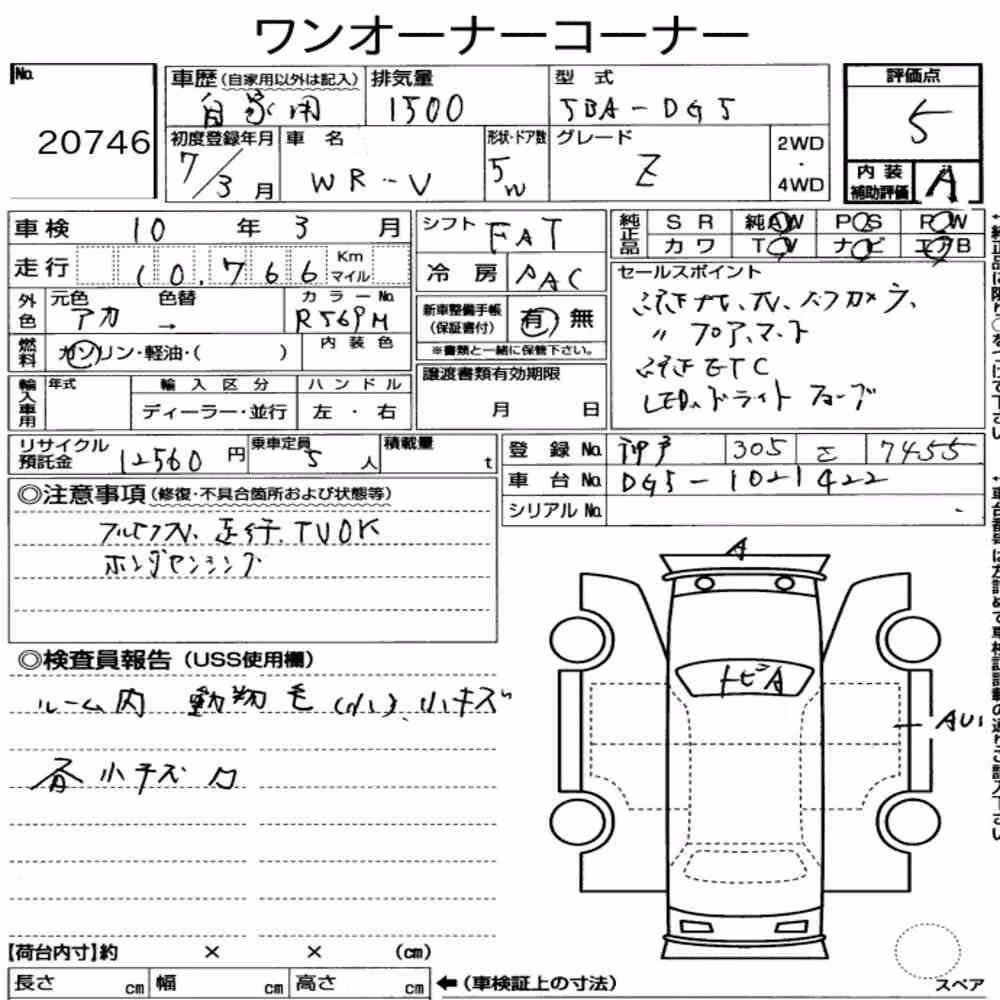 ワンオーナーコーナー
No. 20746
車歴(自家用以外は記入) 自家用
排気量 1500
型式 5BA-DG5
評価点 5
初度登録年月 7/3月
車名 WR-V
形状・ドア数 5W
グレード Z
2WD・4WD
内装補助評価 A
車検 10年 3月
シフト FAT
純正品 SR 純AW PS PW
カワ TV ナビ エアB
走行 10,766 Km マイル
冷房 AAC
セールスポイント
純正ナビ、TV、バックカメラ、
〃 フロアマット
純正ETC
LED、ドライト
外色 元色 アカ 色替 → カラーNo. R569M
新車整備手帳(保証書付) 有 無
※書類と一緒に保管下さい。
燃料 ガソリン・軽油・( )
内装色
譲渡書類有効期限
月 日
輸入車用 年式 輸入区分 ハンドル
ディーラー・並行 左・右
リサイクル預託金 12560円
乗車定員 5人
積載量 t
登録No. 神戸 305 7455
車台No. DG5-1021422
シリアルNo. -
◎注意事項(修復・不具合箇所および状態等)
フルセグTV、走行、TVOK
ホンダセンシング
◎検査員報告(USS使用欄)
ルーム内 動物毛(小)、小キズ
各小キズ
A
トビA
AU1
【荷台内寸】約 × × (cm)
長さ cm 幅 cm 高さ cm
←(車検証上の寸法)
スペア